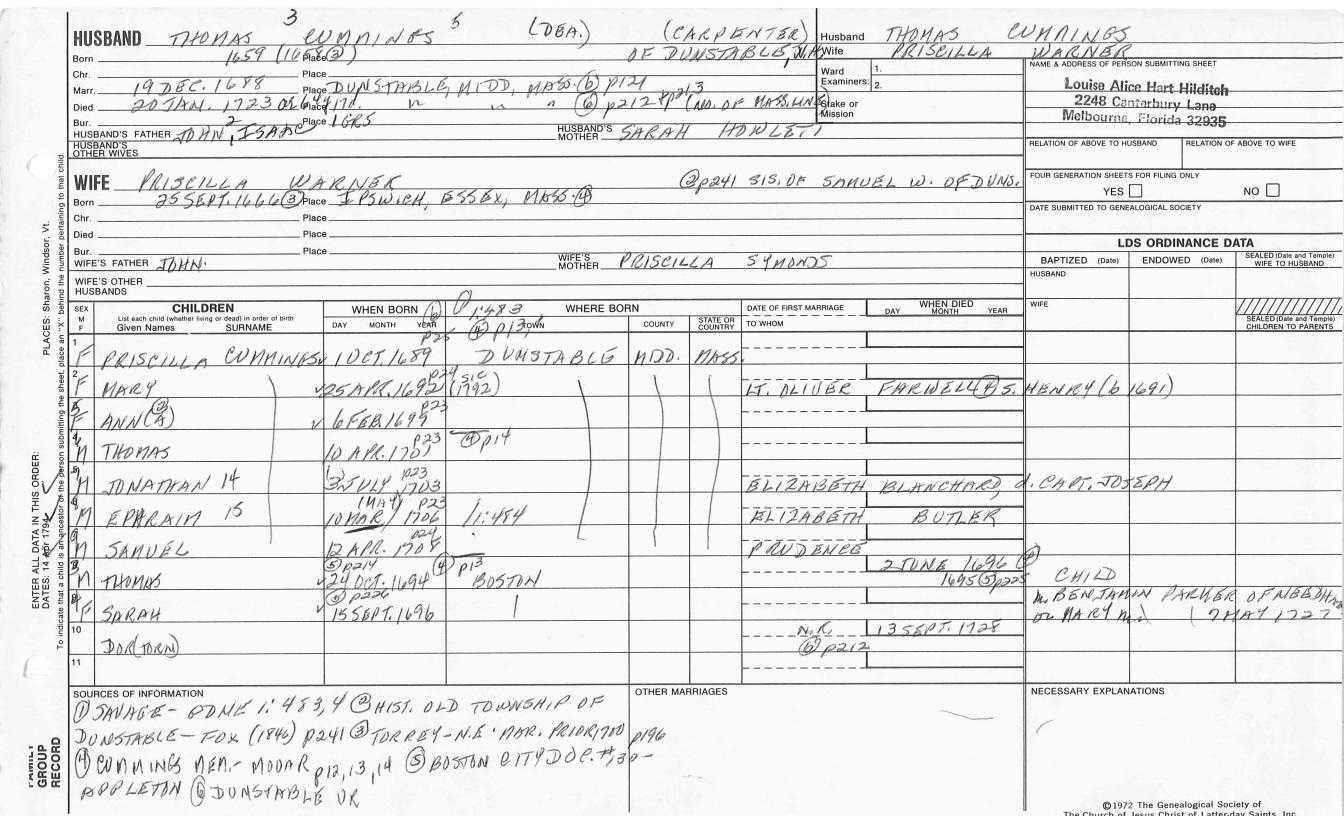 HUSBAND THOMAS 3 CUMMINGS 5 (DEA.) (CARPENTER)
Husband THOMAS CUMMINGS
Born 1659 (1658③) Place OF DUNSTABLE, N.H.
Wife PRISCILLA WARNER
Chr. Place
Marr. 19 DEC. 1688 Place DUNSTABLE, MIDD, MASS. ⑥ p121
Died 20 JAN. 1723 Place " " " ⑥ p212 + p213 (NO. OF MASS. LINE)
Bur. Place 1GRS
Ward Examiners: 1. 2.
Stake or Mission
NAME & ADDRESS OF PERSON SUBMITTING SHEET
Louise Alice Hart Hilditch
2248 Canterbury Lane
Melbourne, Florida 32935
HUSBAND'S FATHER JOHN 2, ISAAC HUSBAND'S MOTHER SARAH HOWLETT
HUSBAND'S OTHER WIVES
RELATION OF ABOVE TO HUSBAND RELATION OF ABOVE TO WIFE
WIFE PRISCILLA WARNER ② p241 SIS. OF SAMUEL W. OF DUNS.
Born 25 SEPT. 1666 ③ Place IPSWICH, ESSEX, MASS. ④
Chr. Place
Died Place
Bur. Place
WIFE'S FATHER JOHN. WIFE'S MOTHER PRISCILLA SYMONDS
WIFE'S OTHER HUSBANDS
FOUR GENERATION SHEETS FOR FILING ONLY
YES NO
DATE SUBMITTED TO GENEALOGICAL SOCIETY
LDS ORDINANCE DATA
BAPTIZED (Date) ENDOWED (Date) SEALED (Date and Temple) WIFE TO HUSBAND
HUSBAND
WIFE
SEALED (Date and Temple) CHILDREN TO PARENTS
SEX M F
CHILDREN
List each child (whether living or dead) in order of birth
Given Names SURNAME
WHEN BORN ⑥ DAY MONTH YEAR
① 1:483 ④ p13,
WHERE BORN TOWN COUNTY STATE OR COUNTRY
DATE OF FIRST MARRIAGE TO WHOM
WHEN DIED DAY MONTH YEAR
1 F PRISCILLA CUMMINGS ✓ 1 OCT. 1689 p25 DUNSTABLE MIDD. MASS.
2 F MARY ✓ 25 APR. 1692 p24 SIC (1792) LT. OLIVER FARWELL ④ S. HENRY (b 1691)
F ANN(A) ② ✓ 6 FEB. 1699 p23
M THOMAS 10 APR. 1701 p23 ④ p14
M JONATHAN 14 3 JULY 1703 p23 ELIZABETH BLANCHARD, d. CAPT. JOSEPH
M EPHRAIM 15 10 MAR/ (MAY) 1706 p23 1:484 ELIZABETH BUTLER
M SAMUEL 12 APR. 1708 p24 PRUDENCE
M THOMAS ✓ 24 OCT. 1694 ⑤ p214 ④ p13 BOSTON 2 JUNE 1696 1695 ⑤ p225 CHILD
F SARAH ✓ 15 SEPT. 1696 ⑤ p226 m. BENJAMIN PARKER OF NEEDHAM
or MARY m. (7 MAY 1727
10 DOR(TORN) N.R. ⑥ p212 13 SEPT. 1728
11
SOURCES OF INFORMATION
① SAVAGE- GDNE 1: 483,4 ② HIST. OLD TOWNSHIP OF
DUNSTABLE- FOX (1846) p241 ③ TORREY- N.E. MAR. PRIOR 1700 p196
④ CUMMINGS MEM.- MOOAR p12,13,14 ⑤ BOSTON CITY DOC. #130-
APPLETON ⑥ DUNSTABLE VR
OTHER MARRIAGES
NECESSARY EXPLANATIONS
©1972 The Genealogical Society of
The Church of Jesus Christ of Latter-day Saints, Inc.
PLACES: Sharon, Windsor, Vt.
ENTER ALL DATA IN THIS ORDER:
DATES: 14 Apr 1794
To indicate that a child is an ancestor of the person submitting the sheet, place an "X" behind the number pertaining to that child.
FAMILY GROUP RECORD